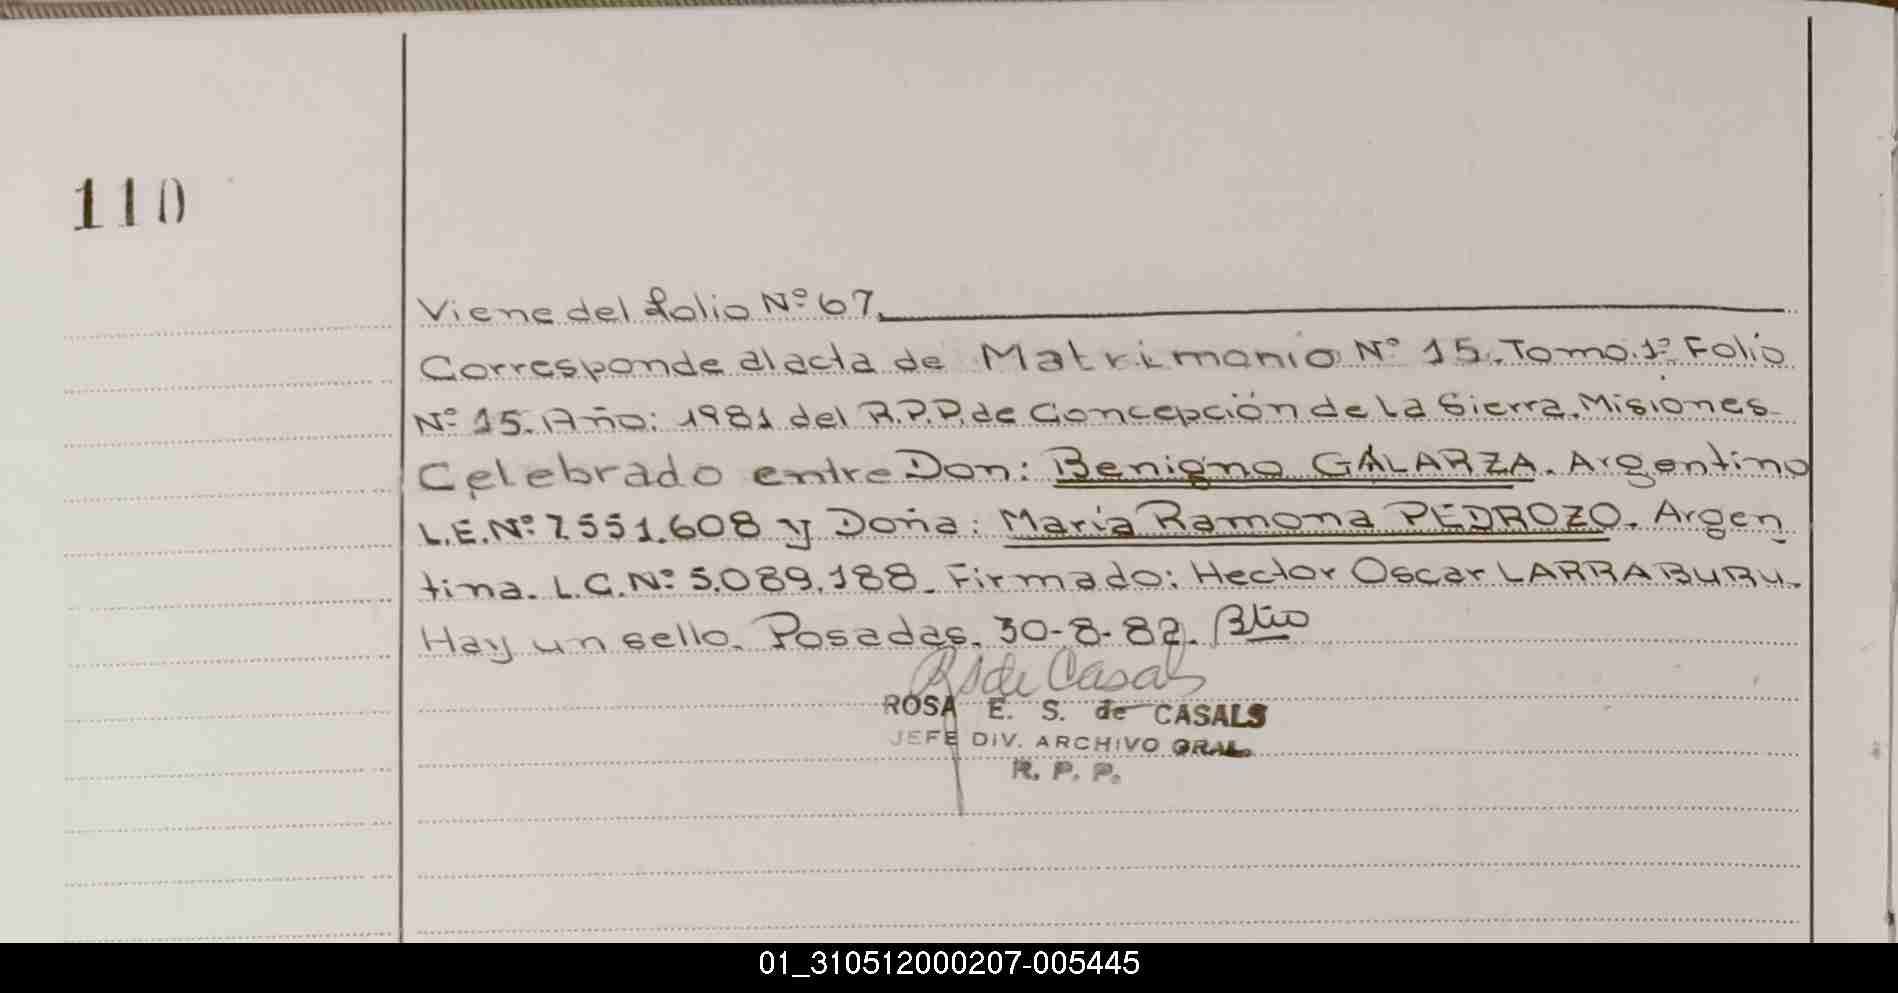 110
Viene del folio Nº 67.
Corresponde al acta de Matrimonio Nº 15. Tomo. 1º. Folio
Nº 15. Año: 1981 del R.P.P. de Concepción de la Sierra. Misiones
Celebrado entre Don: Benigno GALARZA. Argentino
L.E. Nº 7.551.608 y Doña: María Ramona PEDROZO. Argen
tina. L.C. Nº 5.089.188. Firmado: Hector Oscar LARRABURU.
Hay un sello. Posadas. 30-8-82.
RS de Casals
ROSA E. S. de CASALS
JEFE DIV. ARCHIVO GRAL.
R. P. P.
01_310512000207-005445